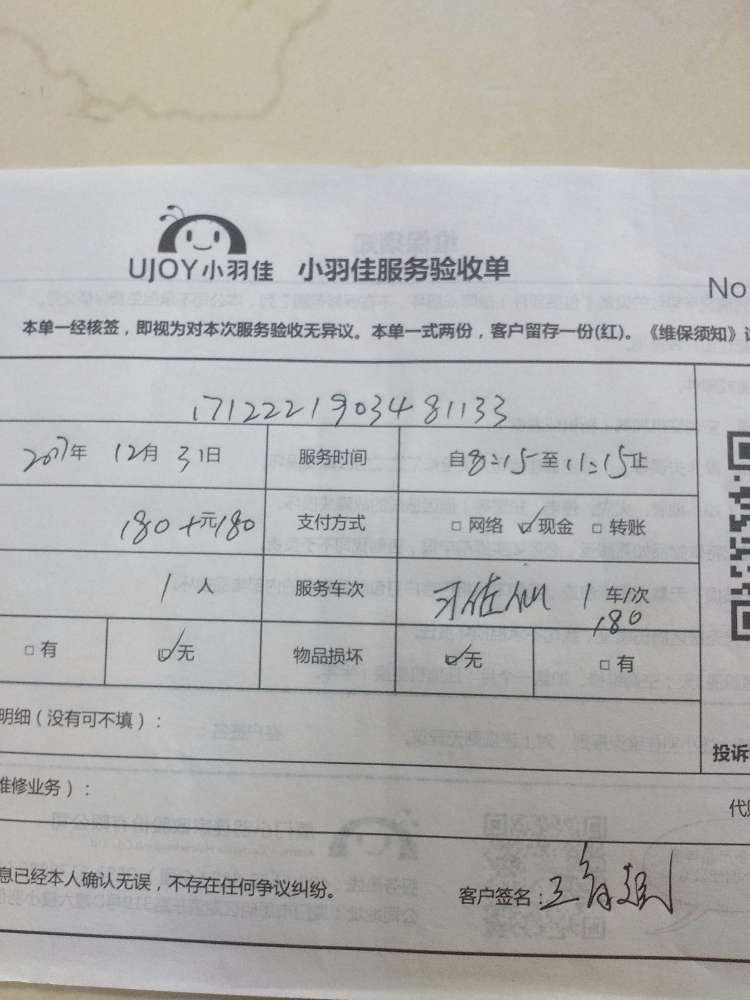 UJOY小羽佳 小羽佳服务验收单
No
本单一经核签，即视为对本次服务验收无异议。本单一式两份，客户留存一份(红)。《维保须知》
1712221903481133
2017年 12月 31日 服务时间 自8:15至11:15止
180+元180 支付方式 □网络 ☑现金 □转账
1人 服务车次 1车/次
180
□有 ☑无 物品损坏 ☑无 □有
明细（没有可不填）：
投诉
维修业务）：
息已经本人确认无误，不存在任何争议纠纷。 客户签名：